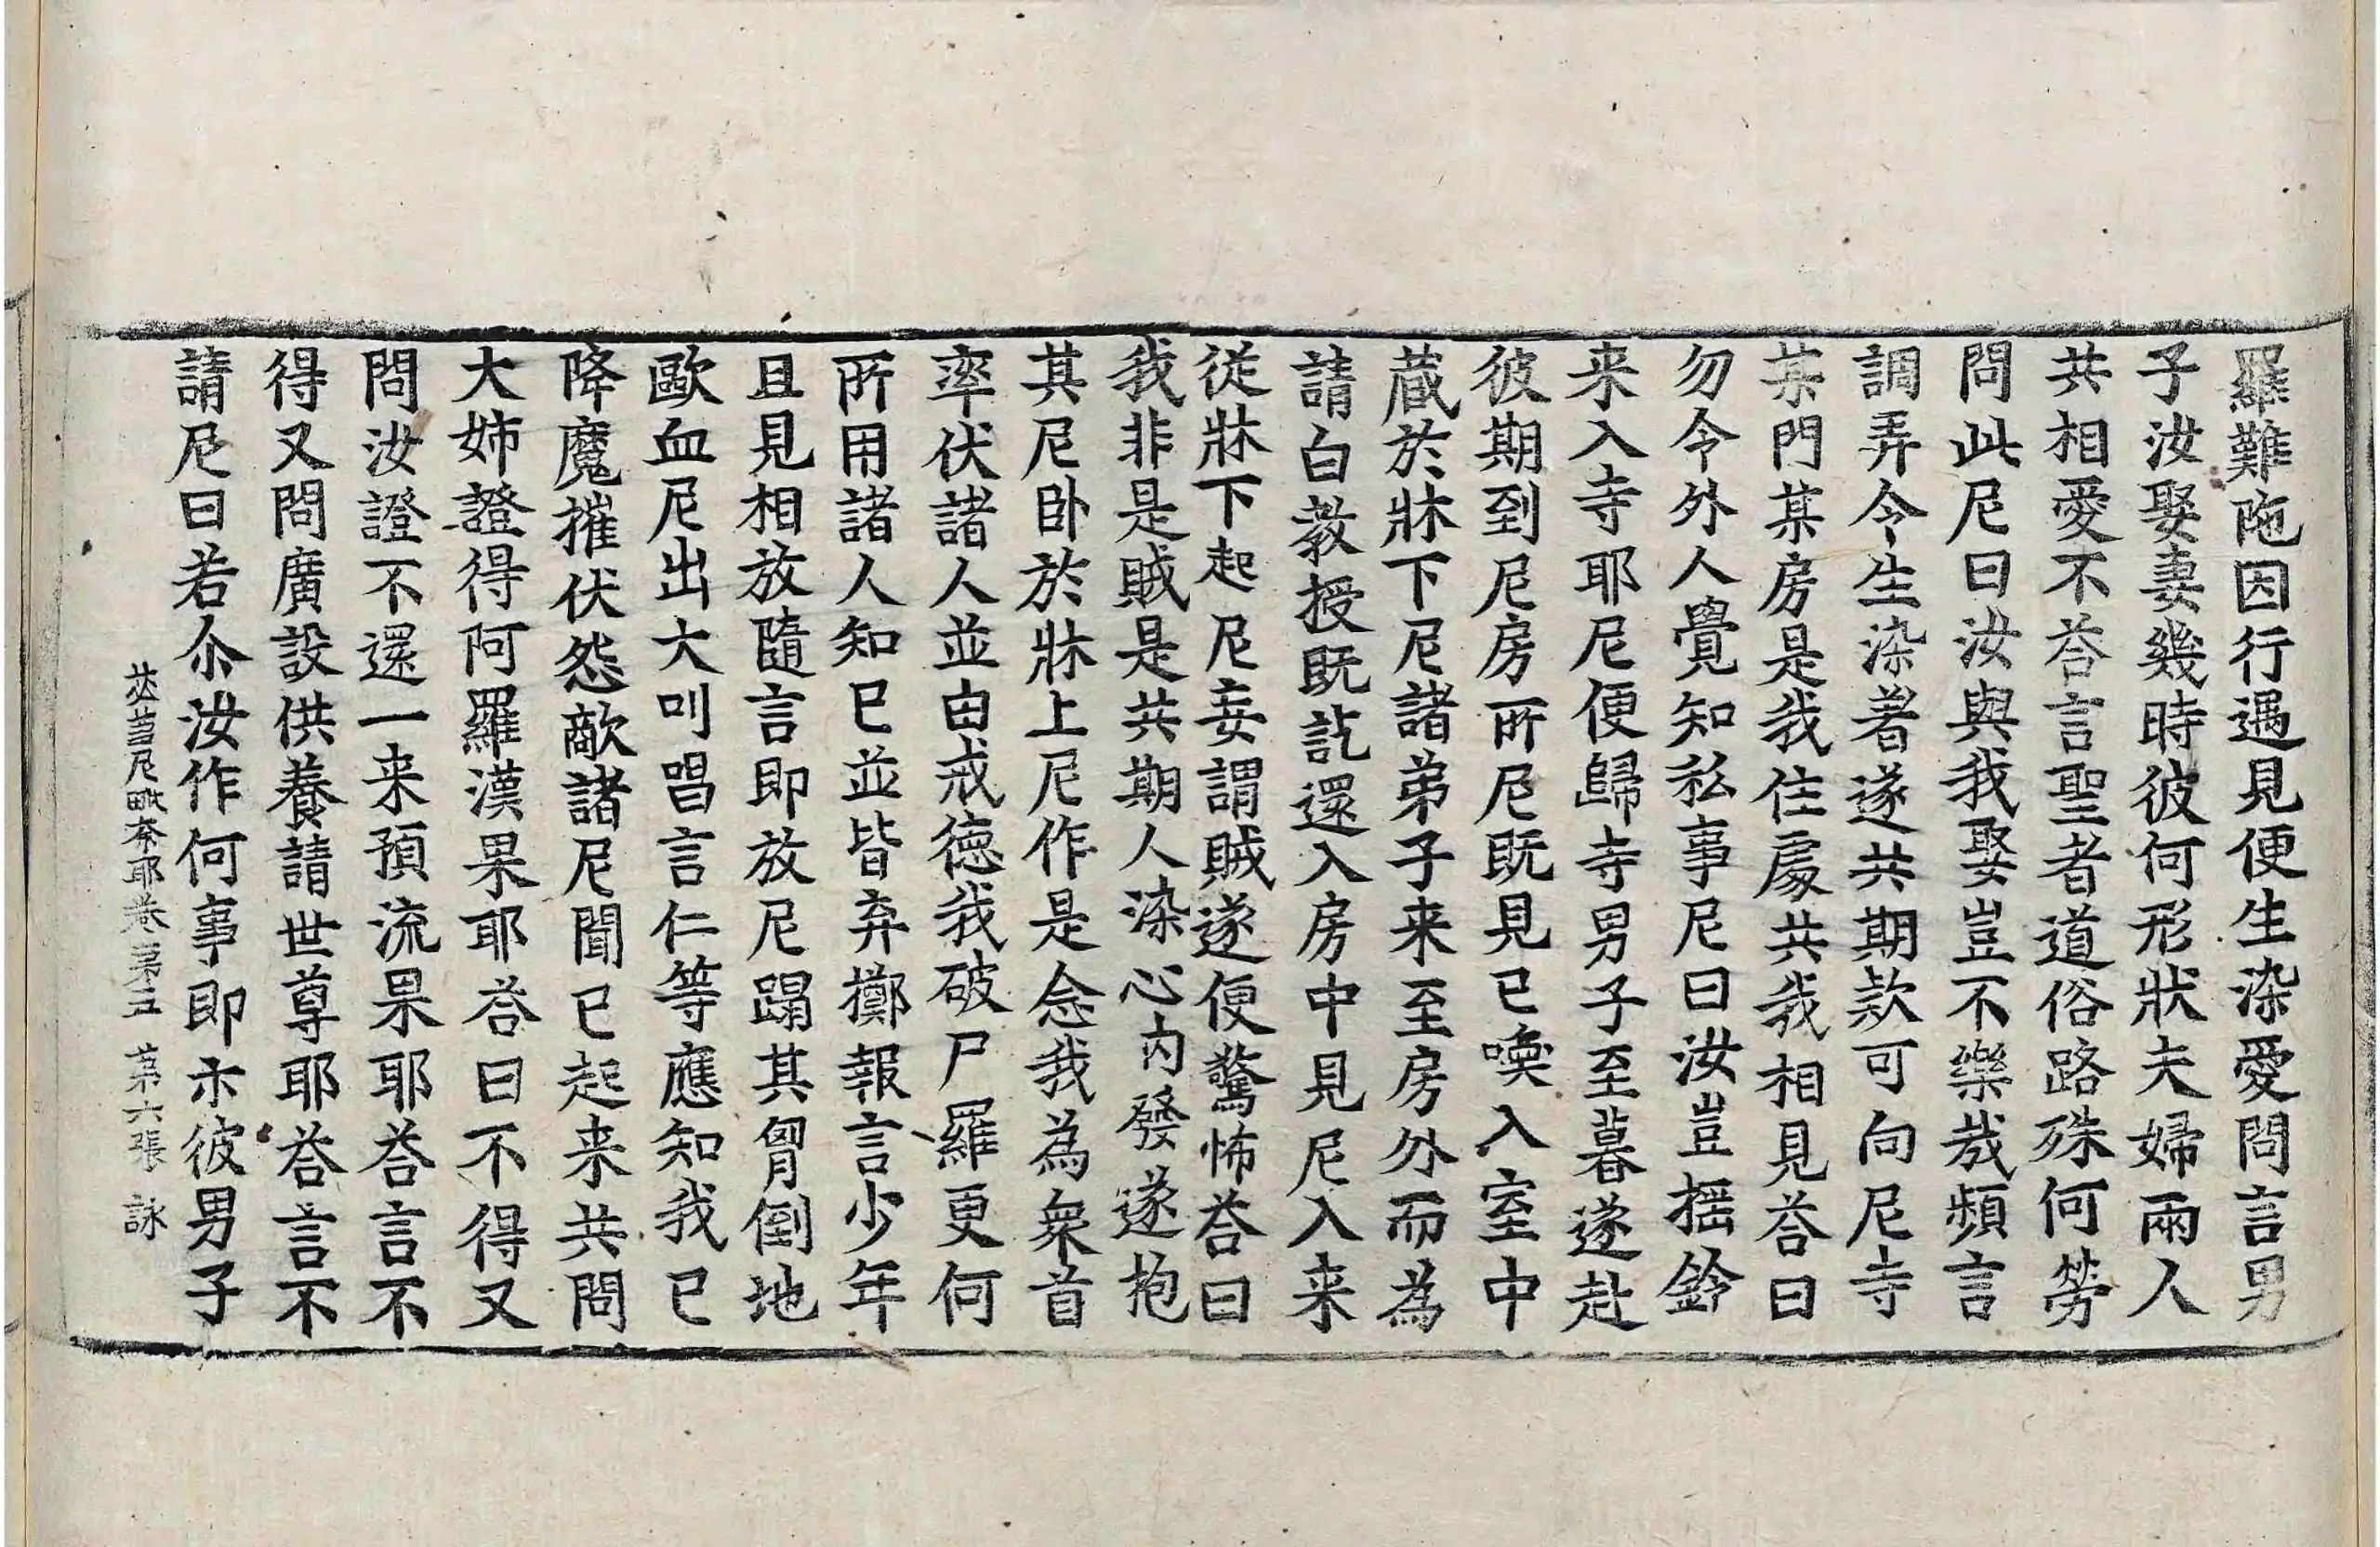 羅難陁因行遇見便生染愛問言男
子汝娶妻幾時彼何形狀夫婦兩人
共相愛不荅言聖者道俗路殊何勞
問此尼曰汝與我娶豈不樂㢤頻言
調弄令生染著遂共期款可向尼寺
某門某房是我住處共我相見荅曰
勿令外人覺知私事尼曰汝豈揺鈴
来入寺耶尼便歸寺男子至暮遂赴
彼期到尼房所尼既見已喚入室中
蔵於牀下尼諸弟子来至房外而為
請白教授既訖還入房中見尼入来
從牀下起尼妄謂賊遂便驚怖荅曰
我非是賊是共期人染心内發遂抱
其尼卧於牀上尼作是念我為衆首
率伏諸人並由戒德我破尸羅更何
所用諸人知已並皆弃擲報言少年
且見相放隨言即放尼蹋其胷倒地
歐血尼出大叫唱言仁等應知我已
降魔摧伏怨敵諸尼聞已起来共問
大姉證得阿羅漢果耶荅曰不得又
問汝證不還一来預流果耶荅言不
得又問廣設供養請世尊耶荅言不
請尼曰若尒汝作何事即示彼男子
苾蒭尼毗奈耶卷第五 第六張 詠